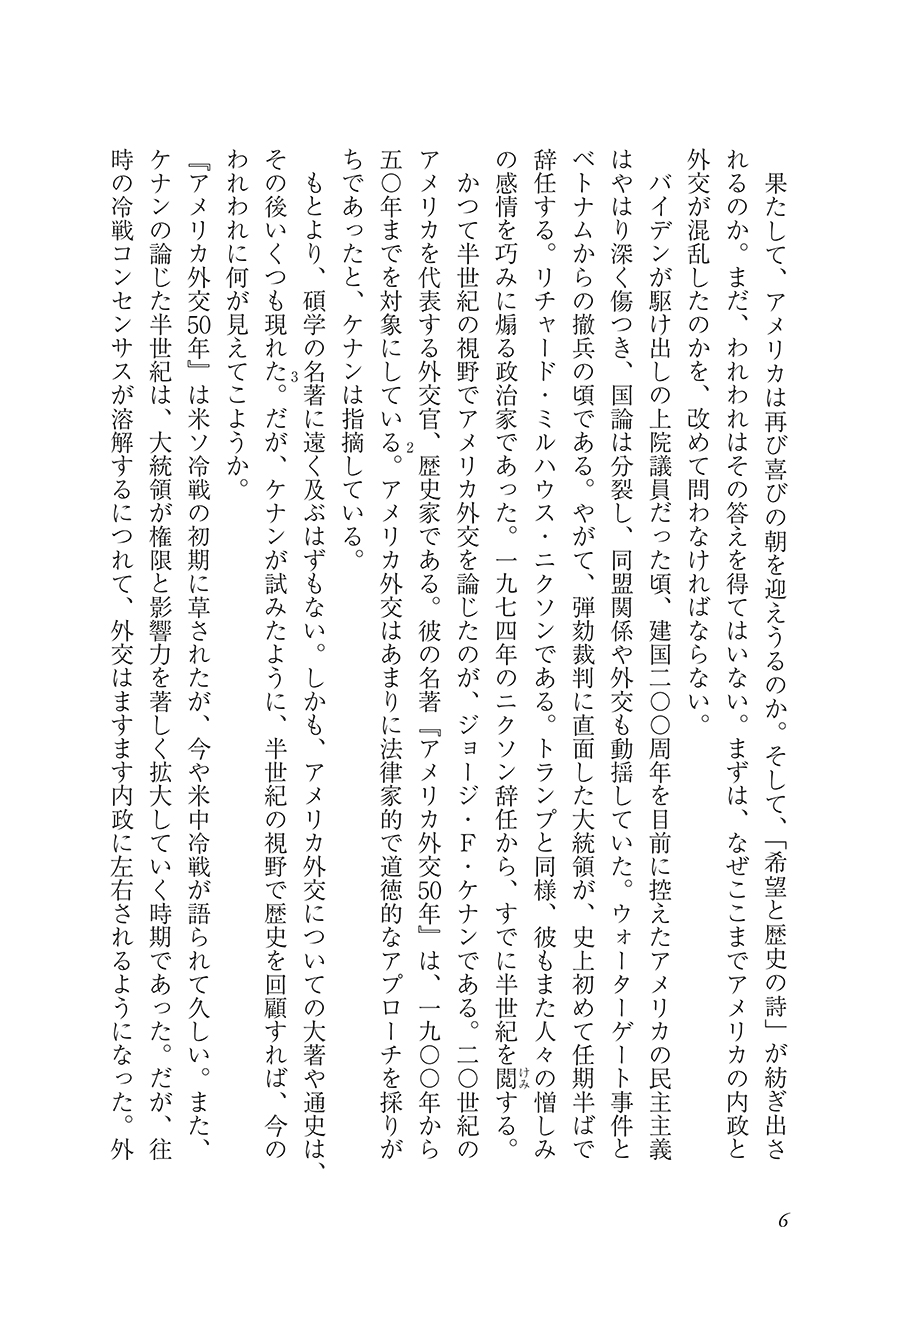 果たして、アメリカは再び喜びの朝を迎えうるのか。そして、「希望と歴史の詩」が紡ぎ出さ
れるのか。まだ、われわれはその答えを得てはいない。まずは、なぜここまでアメリカの内政と
外交が混乱したのかを、改めて問わなければならない。
バイデンが駆け出しの上院議員だった頃、建国二〇〇周年を目前に控えたアメリカの民主主義
はやはり深く傷つき、国論は分裂し、同盟関係や外交も動揺していた。ウォーターゲート事件と
ベトナムからの撤兵の頃である。やがて、弾劾裁判に直面した大統領が、史上初めて任期半ばで
辞任する。リチャード・ミルハウス・ニクソンである。トランプと同様、彼もまた人々の憎しみ
の感情を巧みに煽る政治家であった。一九七四年のニクソン辞任から、すでに半世紀を閲けみする。
かつて半世紀の視野でアメリカ外交を論じたのが、ジョージ・F・ケナンである。二〇世紀の
アメリカを代表する外交官、歴史家である。彼の名著『アメリカ外交50年』は、一九〇〇年から
五〇年までを対象にしている2。アメリカ外交はあまりに法律家的で道徳的なアプローチを採りが
ちであったと、ケナンは指摘している。
もとより、碩学の名著に遠く及ぶはずもない。しかも、アメリカ外交についての大著や通史は、
その後いくつも現れた3。だが、ケナンが試みたように、半世紀の視野で歴史を回顧すれば、今の
われわれに何が見えてこようか。
『アメリカ外交50年』は米ソ冷戦の初期に草されたが、今や米中冷戦が語られて久しい。また、
ケナンの論じた半世紀は、大統領が権限と影響力を著しく拡大していく時期であった。だが、往
時の冷戦コンセンサスが溶解するにつれて、外交はますます内政に左右されるようになった。外
6